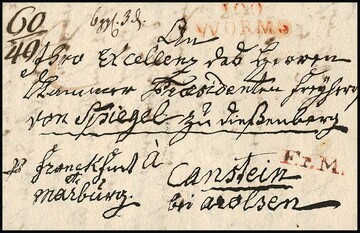 60
40
100
WORMS
An
Ihro Excellenz des Herren
Kammer Præsidenten Freyherr
von Spiegel zu dießenberg
à
p Franckfurt
Marburg.
Canstein
bei arolsen
Fr.M.